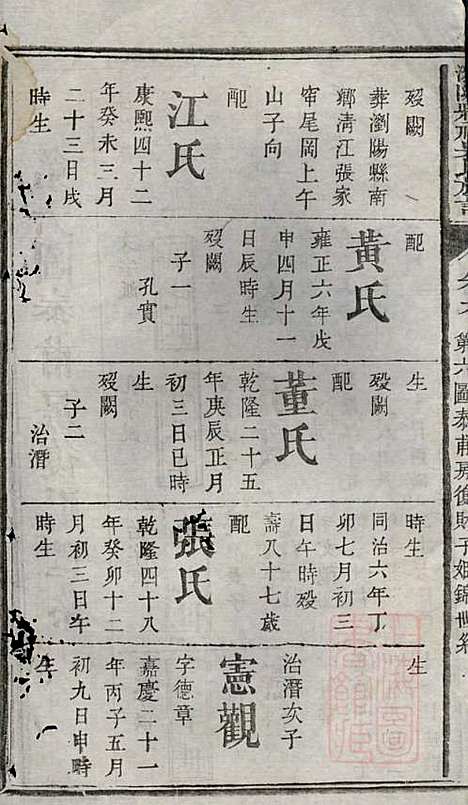 歿闕
葬瀏陽縣南
鄉清江張家
帘尾岡上午
山子向
配
江氏
康熙四十二
年癸未三月
二十三日戌
時生
配
黃氏
雍正六年戊
申四月十一
日辰時生
歿闕
子一
孔實
生
歿闕
配
董氏
乾隆二十五
年庚辰正月
初三日巳時
生
歿闕
子二
治潛
時生
同治六年丁
卯七月初三
日午時歿
壽八十七歲
配
張氏
乾隆四十八
年癸卯十二
月初三日午
時生
生
治潛次子
憲觀
字德章
嘉慶二十一
年丙子五月
初九日申時
生
第六圖恭甫房復
子姫錦世系